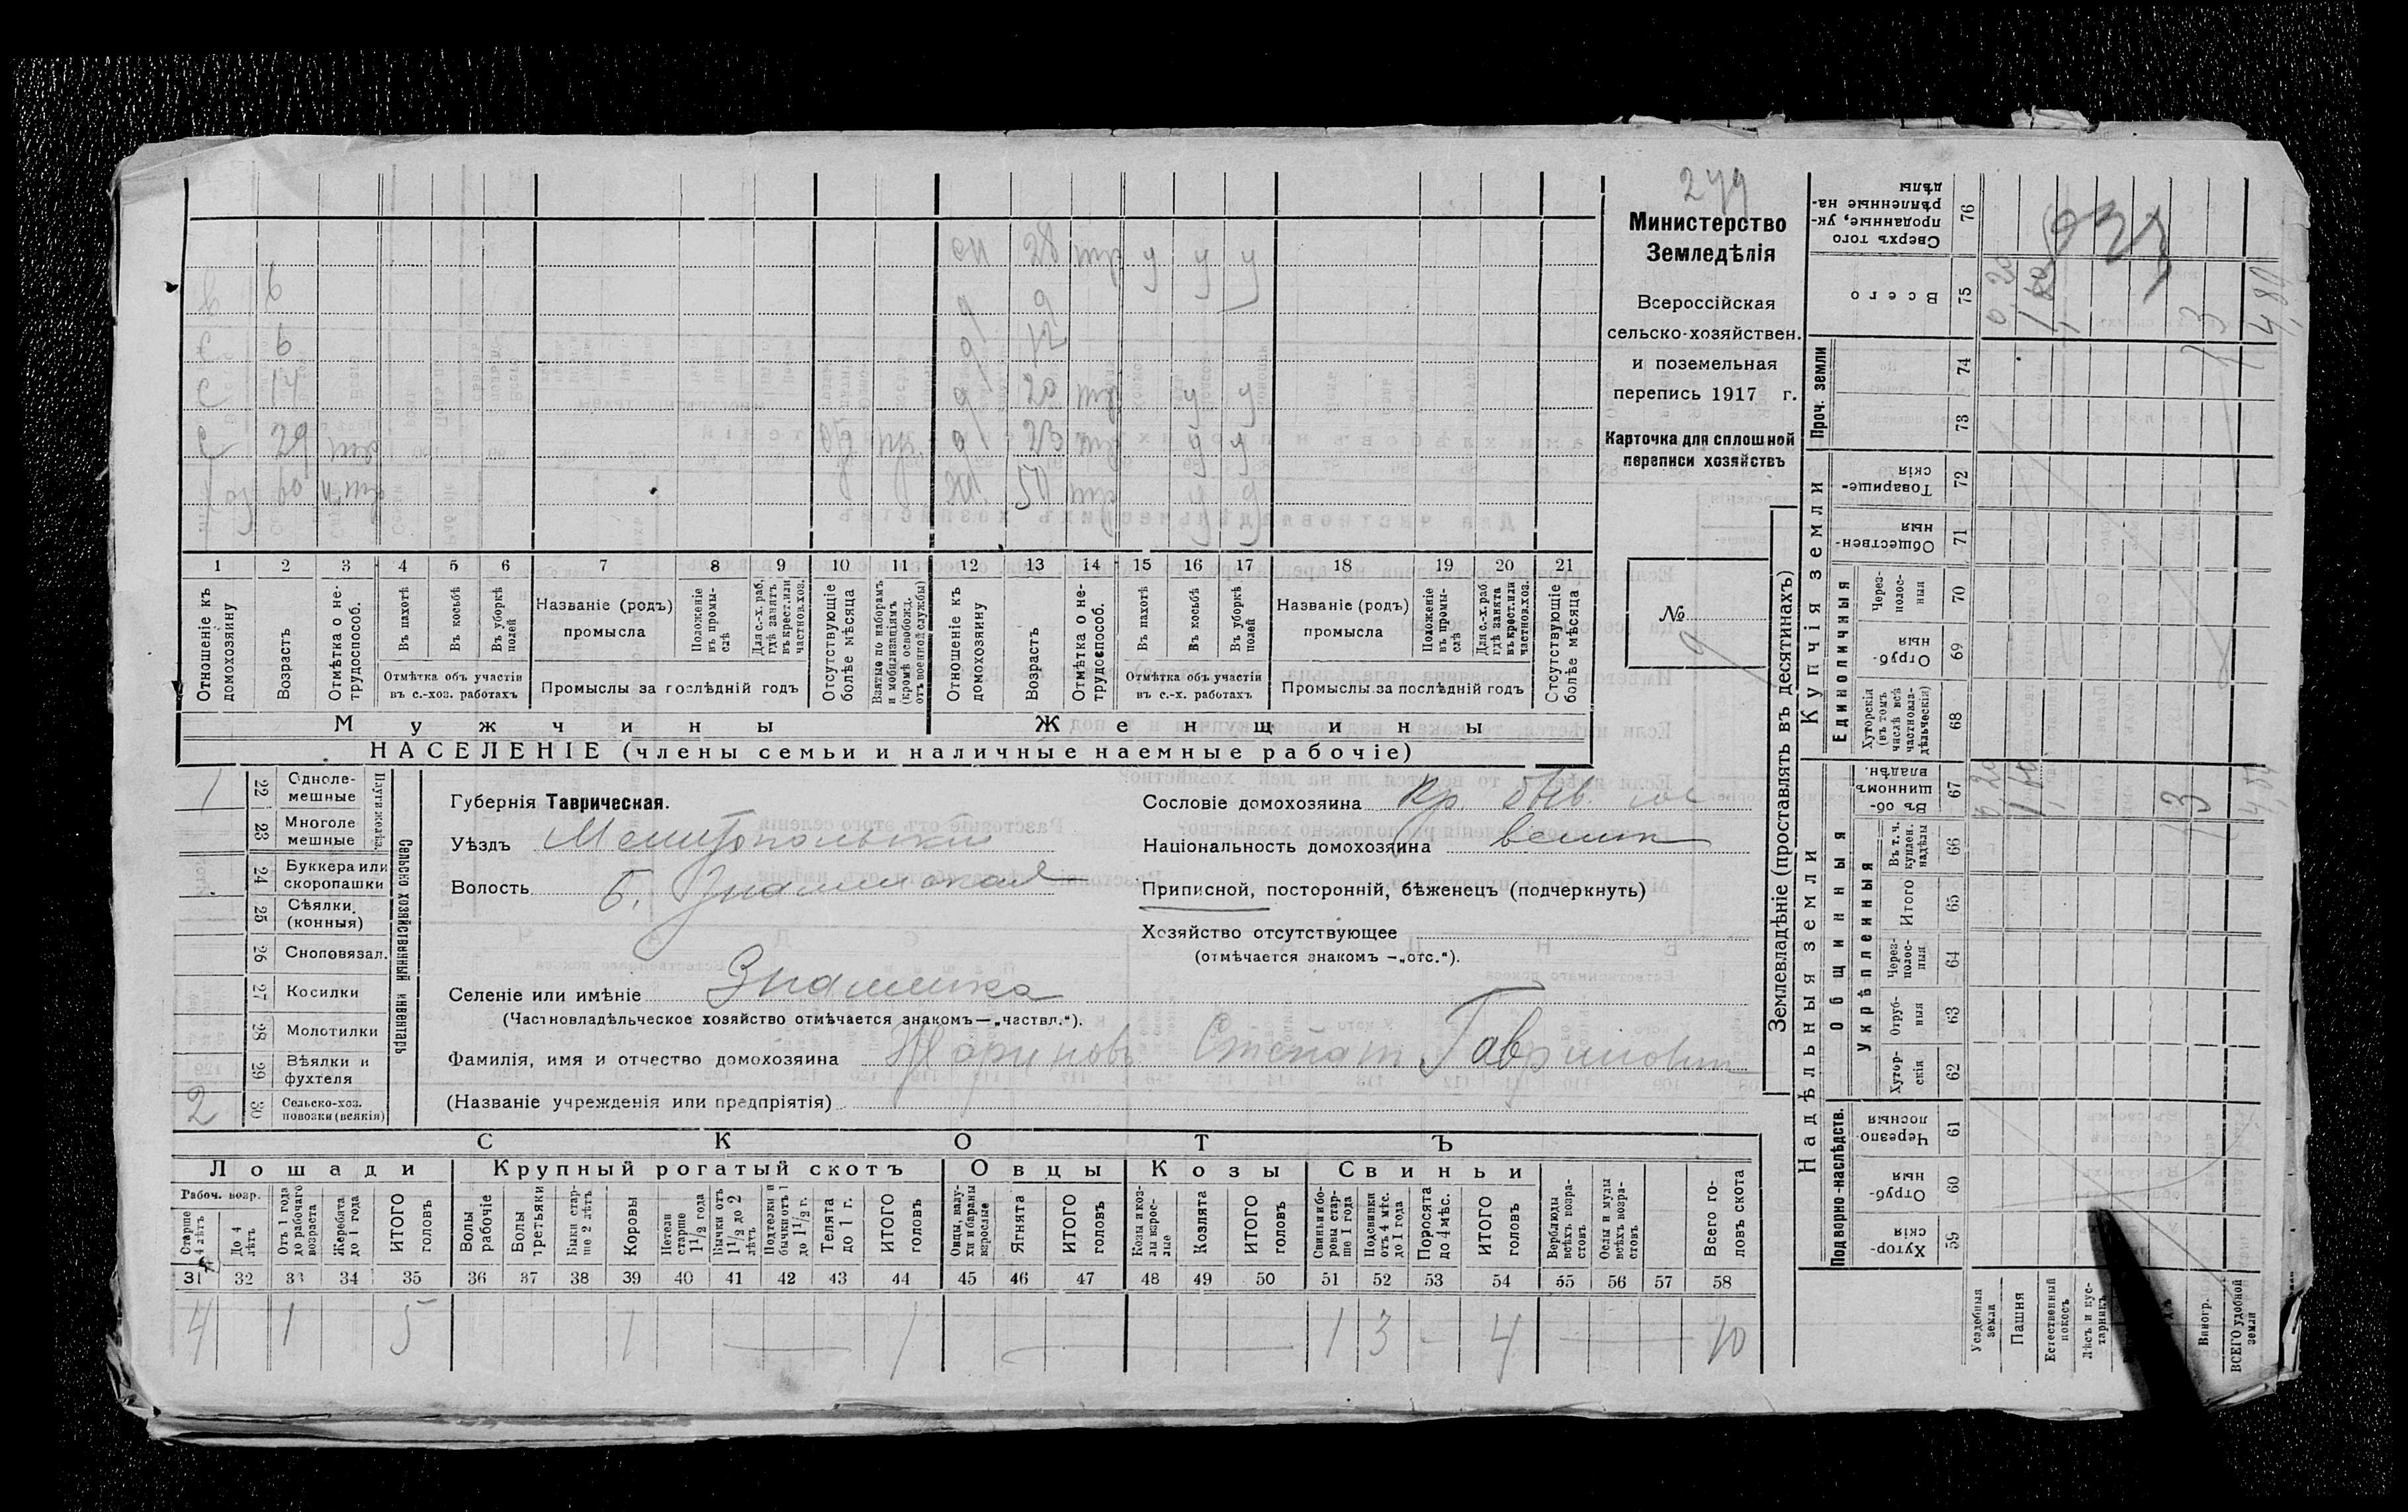 279
Министерство
Земледѣлія
Всероссійская
сельско-хозяйствен.
и поземельная
перепись 1917 г.
Карточка для сплошной
переписи хозяйствъ
№
9
сн 28 тр у у у
6 д 9
С 6 д 12
С 14 д 20 тр у у
С 29 д 23 тр у у
60 ж 50 тр у у
1 2 3 4 5 6 7 8 9 10 11 12 13 14 15 16 17 18 19 20 21
Отношеніе къ домохозяину
Возрастъ
Отмѣтка о не-трудоспособ.
Въ пахотѣ
Въ косьбѣ
Въ уборкѣ полей
Отмѣтка объ участіи въ с.-хоз. работахъ
Названіе (родъ) промысла
Положеніе въ промы-слѣ
Для с.-х. раб. гдѣ занятъ въ крест. или частнов. хоз.
Промыслы за послѣдній годъ
Отсутствующіе болѣе мѣсяца
Взятые по наборамъ и мобилизаціямъ (кромѣ освобожд. отъ военной службы)
Отношеніе къ домохозяину
Возрастъ
Отмѣтка о не-трудоспособ.
Въ пахотѣ
Въ косьбѣ
Въ уборкѣ полей
Отмѣтка объ участіи въ с.-х. работахъ
Названіе (родъ) промысла
Положеніе въ промы-слѣ
Для с.-х. раб. гдѣ занята въ крест. или частнов. хоз.
Промыслы за послѣдній годъ
Отсутствующіе болѣе мѣсяца
Мужчины Женщины
НАСЕЛЕНІЕ (члены семьи и наличные наемные рабочіе)
Сельско хозяйственный инвентарь
Плуги желѣз.
1 22 Одноле-мешные
23 Многоле мешные
24 Буккера или скоропашки
25 Сѣялки (конныя)
26 Сноповязал.
27 Косилки
28 Молотилки
29 Вѣялки и фухтеля
2 30 Сельско-хоз. повозки (всякія)
Губернія Таврическая.
Уѣздъ Мелитопольскій
Волость Б. Знаменская
Сословіе домохозяина кр.
Національность домохозяина велик
Приписной, посторонній, бѣженецъ (подчеркнуть)
Хозяйство отсутствующее
(отмѣчается знакомъ —„отс.“).
Селеніе или имѣніе Знаменка
(Частновладѣльческое хозяйство отмѣчается знакомъ—„частвл.“).
Фамилія, имя и отчество домохозяина Степан Гаврилович
(Названіе учрежденія или предпріятія)
СКОТЪ
Лошади Крупный рогатый скотъ Овцы Козы Свиньи
Рабоч. возр.
Старше 4 лѣтъ
До 4 лѣтъ
Отъ 1 года до рабочаго возраста
Жеребята до 1 года
ИТОГО головъ
Волы рабочіе
Волы третьяки
Быки стар-ше 2 лѣтъ
Коровы
Нетели старше 1½ года
Бычки отъ 1½ до 2 лѣтъ
Подтелки и бычки отъ 1 до 1½ г.
Телята до 1 г.
ИТОГО головъ
Овцы, валу-хи и бараны взрослые
Ягнята
ИТОГО головъ
Козы и коз-лы взрос-лые
Козлята
ИТОГО головъ
Свиньи и бо-ровы стар-ше 1 года
Подсвинки отъ 4 мѣс. до 1 года
Поросята до 4 мѣс.
ИТОГО головъ
Верблюды всѣхъ возра-стовъ
Ослы и мулы всѣхъ возра-стовъ
Всего го-ловъ скота
31 32 33 34 35 36 37 38 39 40 41 42 43 44 45 46 47 48 49 50 51 52 53 54 55 56 57 58
4 1 5 1 — 1 — 1 3 - 4 — 10
Землевладѣніе (проставлять въ десятинахъ)
Надѣльныя земли Купчія земли Проч. земли
Подворно-наслѣдств.
Общинныя
Укрѣпленныя
Единоличныя
Сверхъ того проданные, ук-рѣпленные на-дѣлы 76
Всего 75
74
73
Товарище-скія 72
Обществен-ныя 71
Через-полос-ныя 70
Отруб-ныя 69
Хуторскія (въ томъ числѣ всѣ частновла-дѣльческія) 68
Въ об-щинномъ владѣн. 67
Въ т. ч. куплен. надѣлы 66
Итого 65
Через-полос-ныя 64
Отруб-ныя 63
Хутор-скія 62
Черезпо-лосныя 61
Отруб-ныя 60
Хутор-скія 59
Усадебныя земли
Пашня
Естественный покосъ
Лѣсъ и кус-тарникъ
Виногр.
ВСЕГО удобной земли
0,20
3
4,80